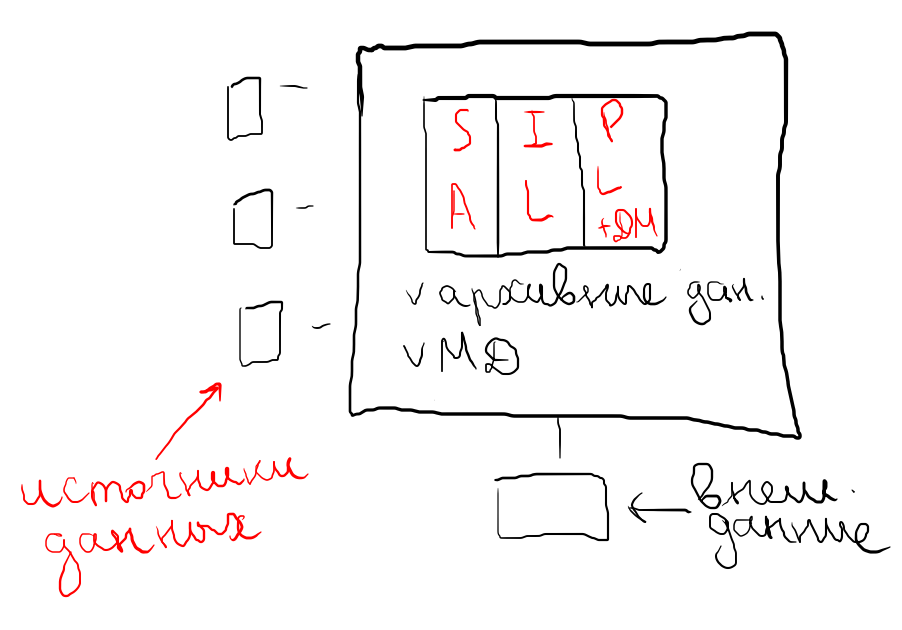 S I P
A L L
+DM
v архивные дан.
v МД
источники
данных
внеш.
данные